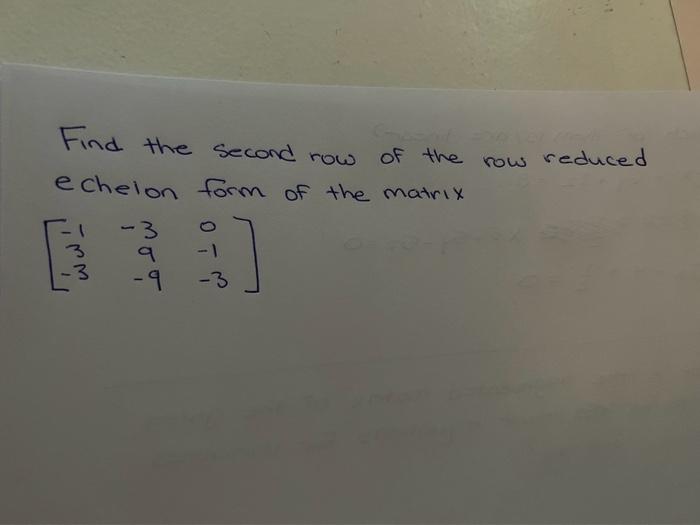 Find the second row of the row reduced
echelon form of the matrix
-1 -3 0
3 9 -1
-3 -9 -3